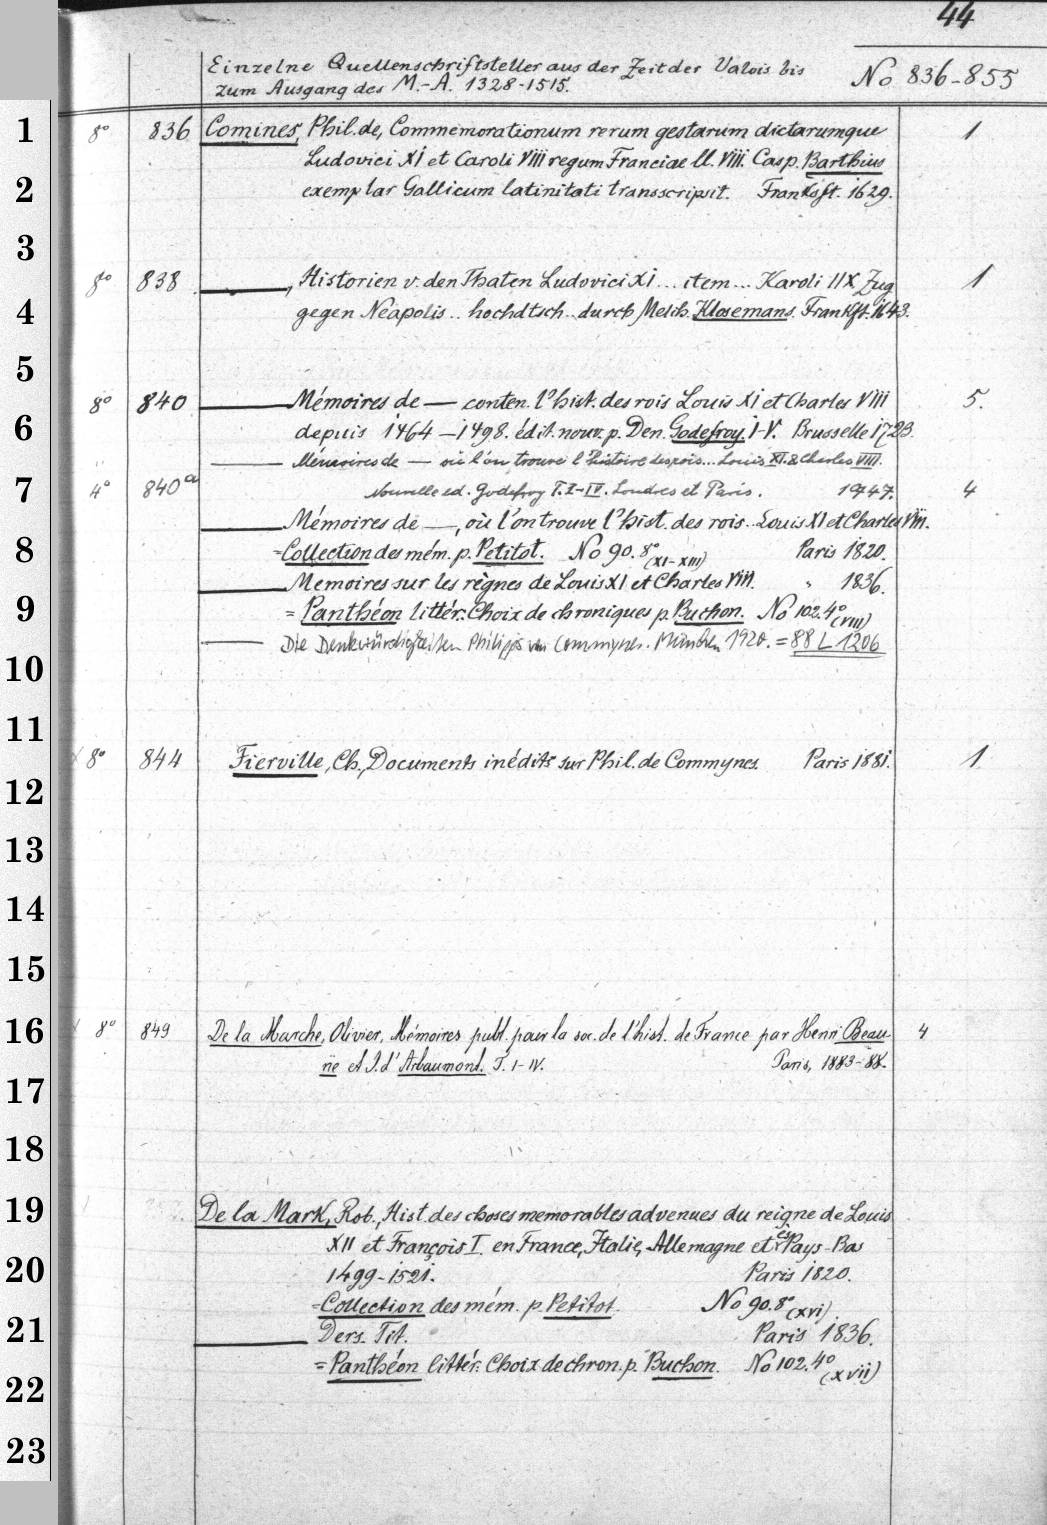 44
Einzelne Quellenschriftsteller aus der Zeit der Valois bis
zum Ausgang des M.-A. 1328-1515.
No 836-855
1
8° 836 Comines, Phil. de, Commemorationum rerum gestarum dictarumque 1
Ludovici XI et Caroli VIII regum Franciae ll. VIII. Casp. Barthius
2
exemplar Gallicum latinitati transscripsit. Frankft. 1629.
3
8° 838 ———, Historien v. den Thaten Ludovici XI... item... Karoli IIX Zug 1
4
gegen Neapolis.. hochdtsch. durch Melch. Klosemans. Frankft. 1643.
5
8° 840 ——— Mémoires de — conten. l'hist. des rois Louis XI et Charles VIII 5.
6
depuis 1464 — 1498. édit. nouv. p. Den. Godefroy. I-V. Brusselle 1723.
——— Mémoires de — où l'on trouve l'histoire des rois... Louis XI. & Charles VIII.
7
4° 840a Nouvelle ed. Godefroy T. I-IV. Londres et Paris. 1747. 4
——— Mémoires de —, où l'on trouve l'hist. des rois.. Louis XI et Charles VIII.
8
=Collection des mém. p. Petitot. No 90. 8° (XI-XIII) Paris 1820.
——— Memoires sur les règnes de Louis XI et Charles VIII. " 1836.
9
= Panthéon littér. Choix de chroniques p. Buchon. No 102. 4° (VIII)
——— Die Denkwürdigkeiten Philipps von Commynes. München 1920. = 88 L 1206
10
11
8° 844 Fierville, Ch., Documents inédits sur Phil. de Commynes. Paris 1881. 1
12
13
14
15
16
8° 849 De la Marche, Olivier, Mémoires publ. pour la soc. de l'hist. de France par Henri Beau- 4
ne et J. d'Arbaumont. T. I-IV. Paris, 1883-88.
17
18
19
De la Mark, Rob., Hist. des choses memorables advenues du reigne de Louis
XII et François I. en France, Italie, Allemagne et es Pays-Bas
20
1499-1521. Paris 1820.
=Collection des mém. p. Petitot. No 90. 8° (XVI)
21
——— Ders. Tit. Paris 1836.
= Panthéon littér. Choix de chron. p. Buchon. No 102. 4° (XVII)
22
23